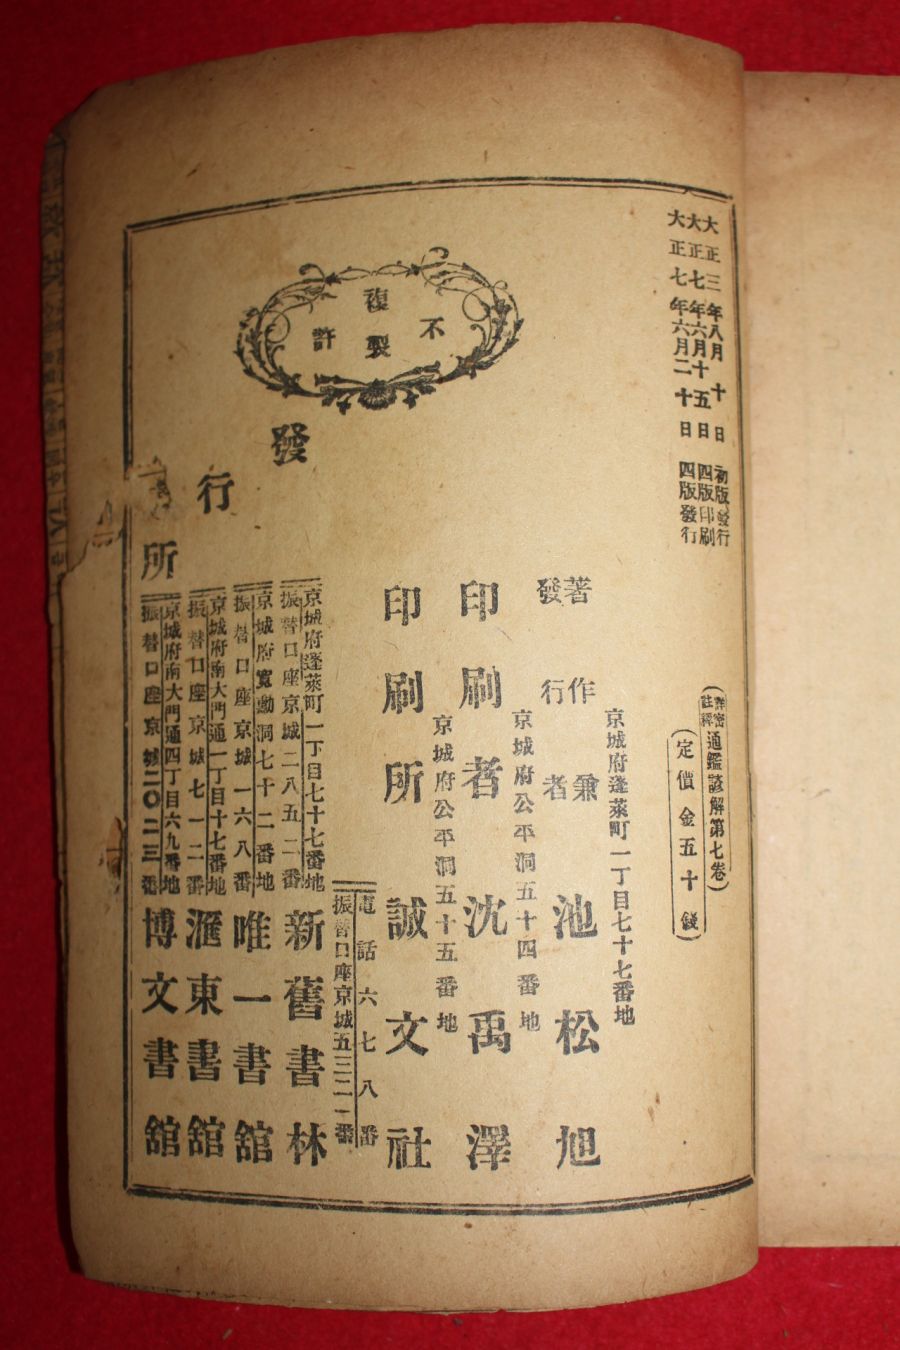 大正三年八月十日初版發行
大正七年六月十五日四版印刷
大正七年六月二十日四版發行
不許複製
詳密註釋通鑑諺解第七卷
定價金五十錢
京城府蓬萊町一丁目七十七番地
著作兼發行者 池松旭
京城府公平洞五十四番地
印刷者 沈禹澤
京城府公平洞五十五番地
印刷所 誠文社
發行所
電話六七八番
振替口座京城五三二一番
京城府蓬萊町一丁目七十七番地
振替口座京城二八五二番
新舊書林
京城府寬勳洞七十二番地
振替口座京城一六八番
唯一書舘
京城府南大門通一丁目十七番地
振替口座京城七一二番
滙東書舘
京城府南大門通四丁目六九番地
振替口座京城二〇二三番
博文書舘